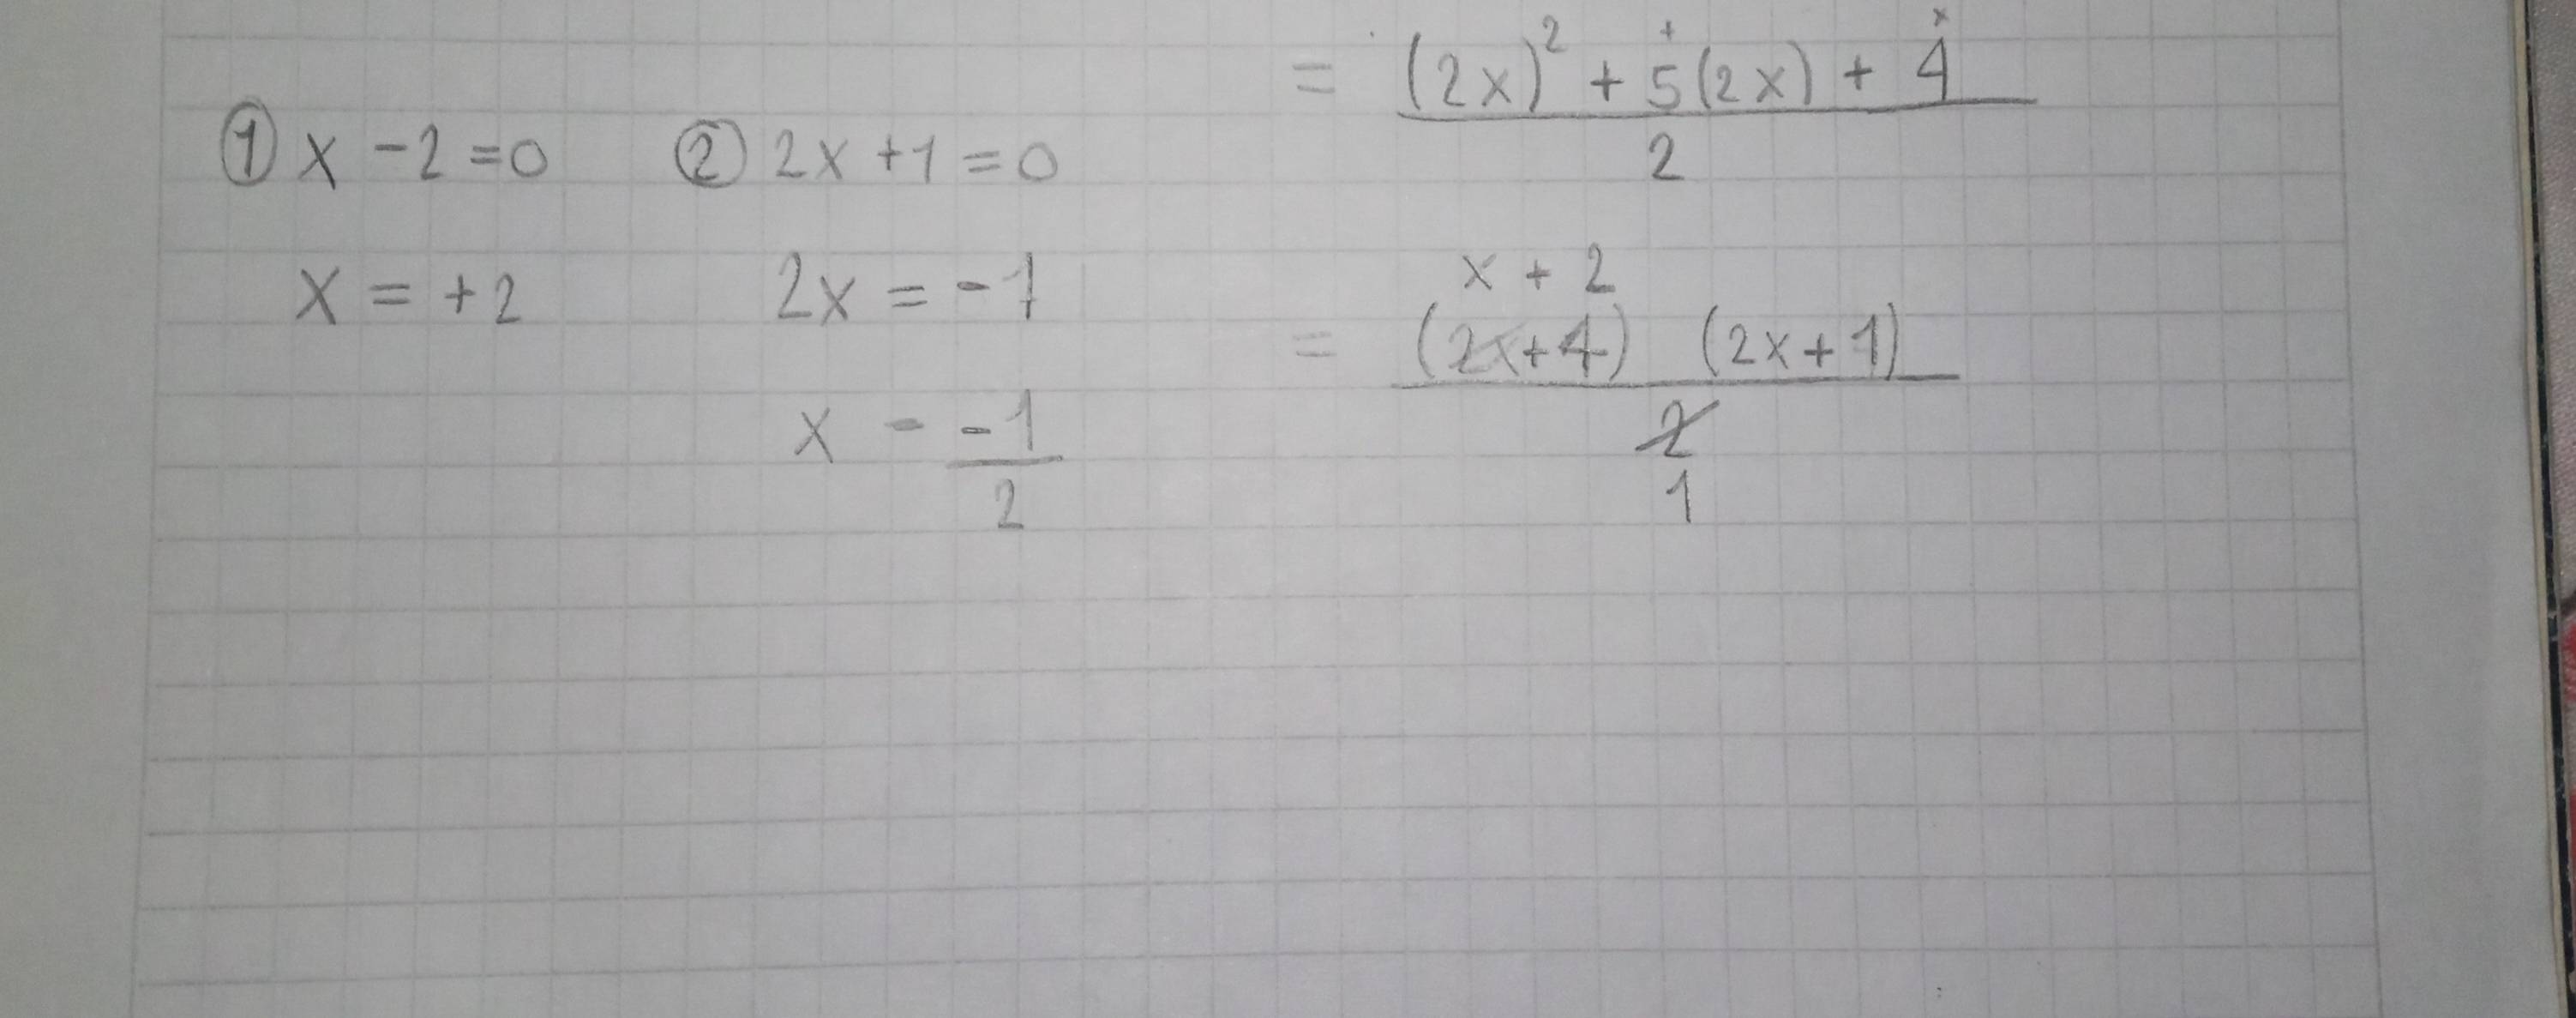 ① x - 2 = 0
x = + 2
② 2x + 1 = 0
2x = - 1
x - -1
2
+ x
= (2x)² + 5(2x) + 4
2
x + 2
= (2x+4) (2x+1)
2
1